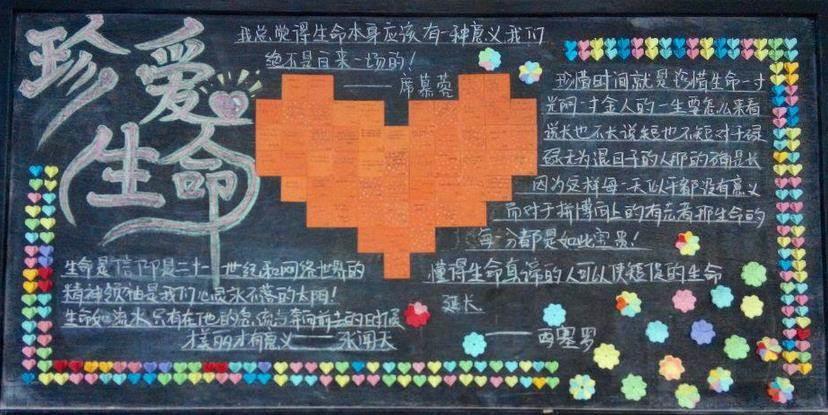 珍爱
生命
我总觉得生命本身应该有一种意义我们
绝不是白来一场的!
——席慕蓉
珍惜时间就是珍惜生命一寸
光阴一寸金人的一生要怎么来看
说长也不长说短也不短对于碌
碌无为混日子的人那的确是长
因为这样每一天似乎都没有意义
而对于拼搏向上的有志者那生命的
每一分都是如此宝贵!
生命是信仰是二十一世纪和网络世界的
精神领袖是我们心灵永不落的太阳!
生命如流水只有在他的急流与奔向前去的时候
才美丽才有意义——张闻天
懂得生命真谛的人可以使短促的生命
延长
——西塞罗